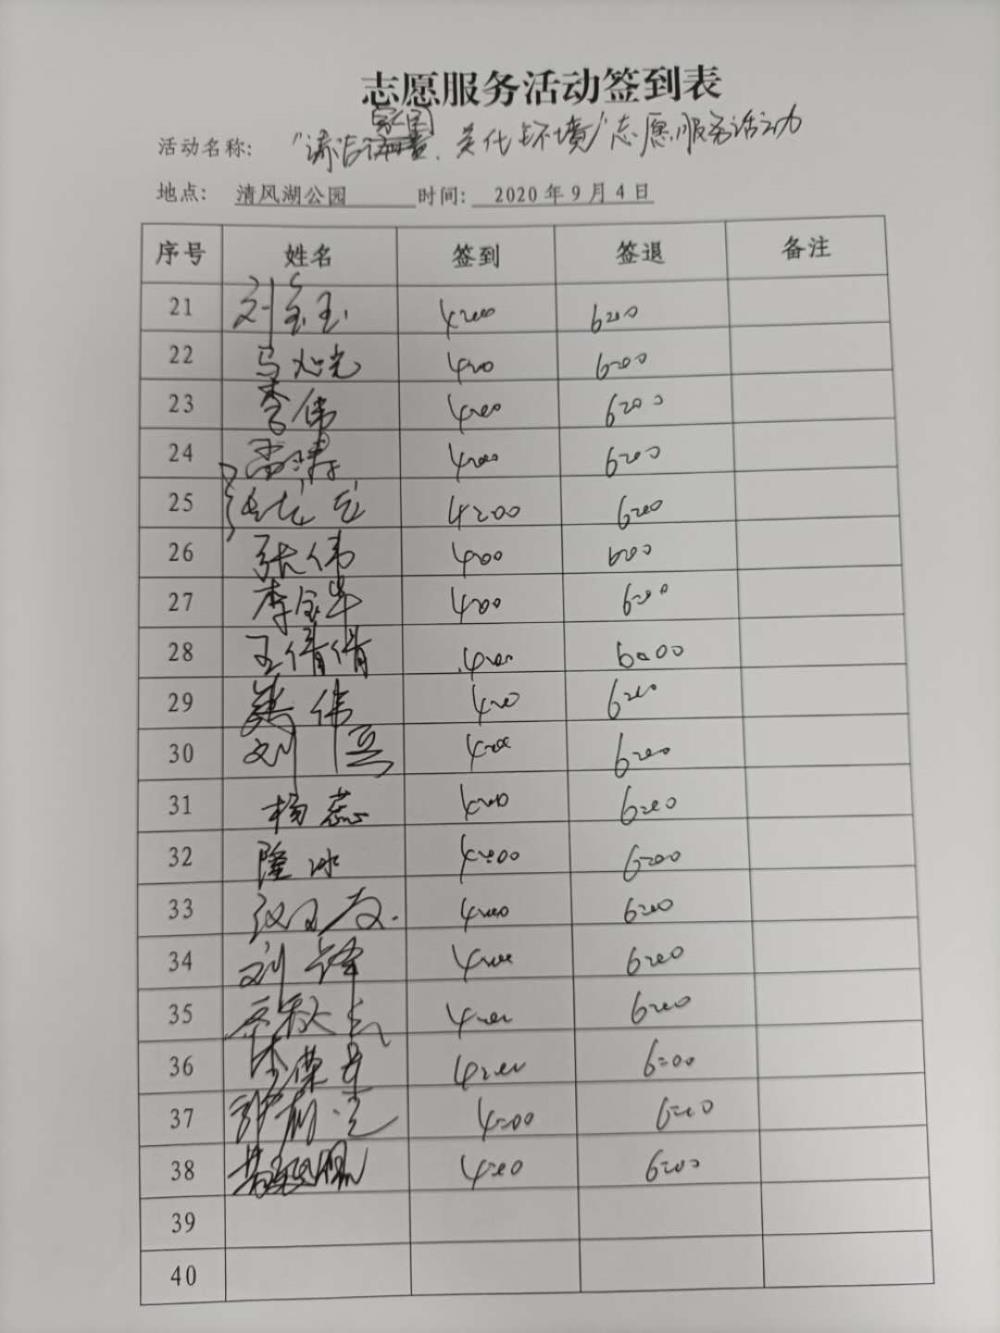 志愿服务活动签到表
活动名称: "清洁家园、美化环境"志愿服务活动
地点: 清风湖公园 时间: 2020年9月4日
序号 姓名 签到 签退 备注
21 刘玉 4:00 6:00
22 马 光 4:00 6:00
23 李伟 4:00 6:00
24 4:00 6:00
25 4:00 6:00
26 张伟 4:00 6:00
27 李宝华 4:00 6:00
28 王倩倩 4:00 6:00
29 伟 4:00 6:00
30 刘 4:00 6:00
31 杨蕊 4:00 6:00
32 隆冰 4:00 6:00
33 4:00 6:00
34 刘锋 4:00 6:00
35 4:00 6:00
36 4:00 6:00
37 4:00 6:00
38 4:00 6:00
39
40